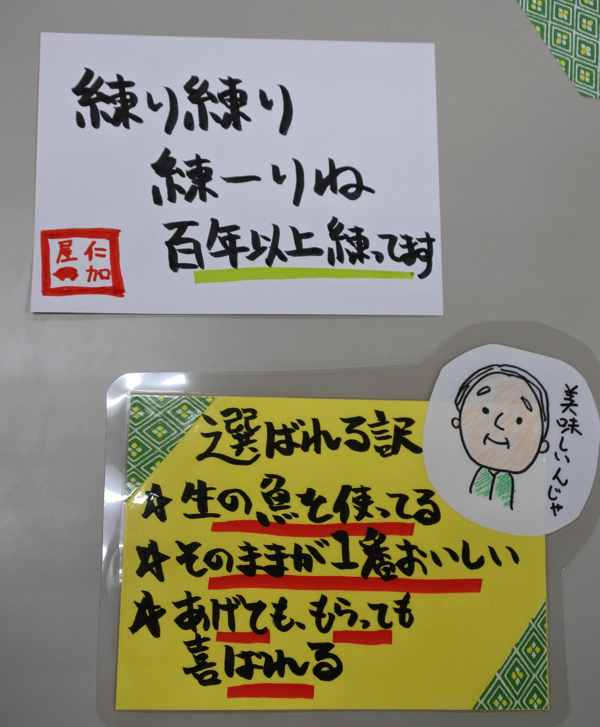 練り練り
練ーりね
百年以上練ってます
仁加
屋
選ばれる訳
☆生の魚を使ってる
☆そのままが1番おいしい
☆あげても、もらっても
喜ばれる
美味しいんじゃ